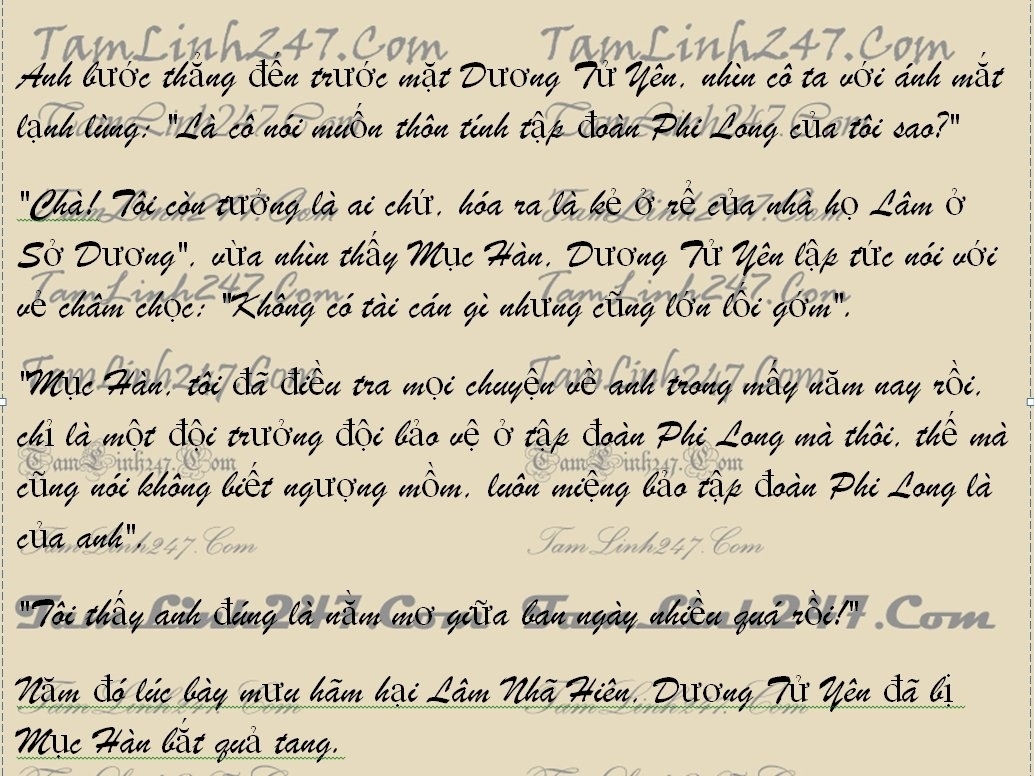 TamLinh247.Com TamLinh247.Com
Anh bước thẳng đến trước mặt Dương Tử Yên, nhìn cô ta với ánh mắt
TamLinh247.Com TamLinh247.Com
lạnh lùng: "Là cô nói muốn thôn tính tập đoàn Phi Long của tôi sao?"
"Chà! Tôi còn tưởng là ai chứ, hóa ra là kẻ ở rể của nhà họ Lâm ở
TamLinh247.Com TamLinh247.Com
Sở Dương", vừa nhìn thấy Mục Hàn, Dương Tử Yên lập tức nói với
TamLinh247.Com TamLinh247.Com
vẻ châm chọc: "Không có tài cán gì nhưng cũng lớn lối gớm".
TamLinh247.Com TamLinh247.Com
"Mục Hàn, tôi đã điều tra mọi chuyện về anh trong mấy năm nay rồi,
chỉ là một đội trưởng đội bảo vệ ở tập đoàn Phi Long mà thôi, thế mà
TamLinh247.Com TamLinh247.Com
cũng nói không biết ngượng mồm, luôn miệng bảo tập đoàn Phi Long là
của anh".
TamLinh247.Com TamLinh247.Com
"Tôi thấy anh đúng là nằm mơ giữa ban ngày nhiều quá rồi!"
TamLinh247.Com TamLinh247.Com
Năm đó lúc bày mưu hãm hại Lâm Nhã Hiên, Dương Tử Yên đã bị
TamLinh247.Com TamLinh247.Com
Mục Hàn bắt quả tang.
TamLinh247.Com TamLinh247.Com